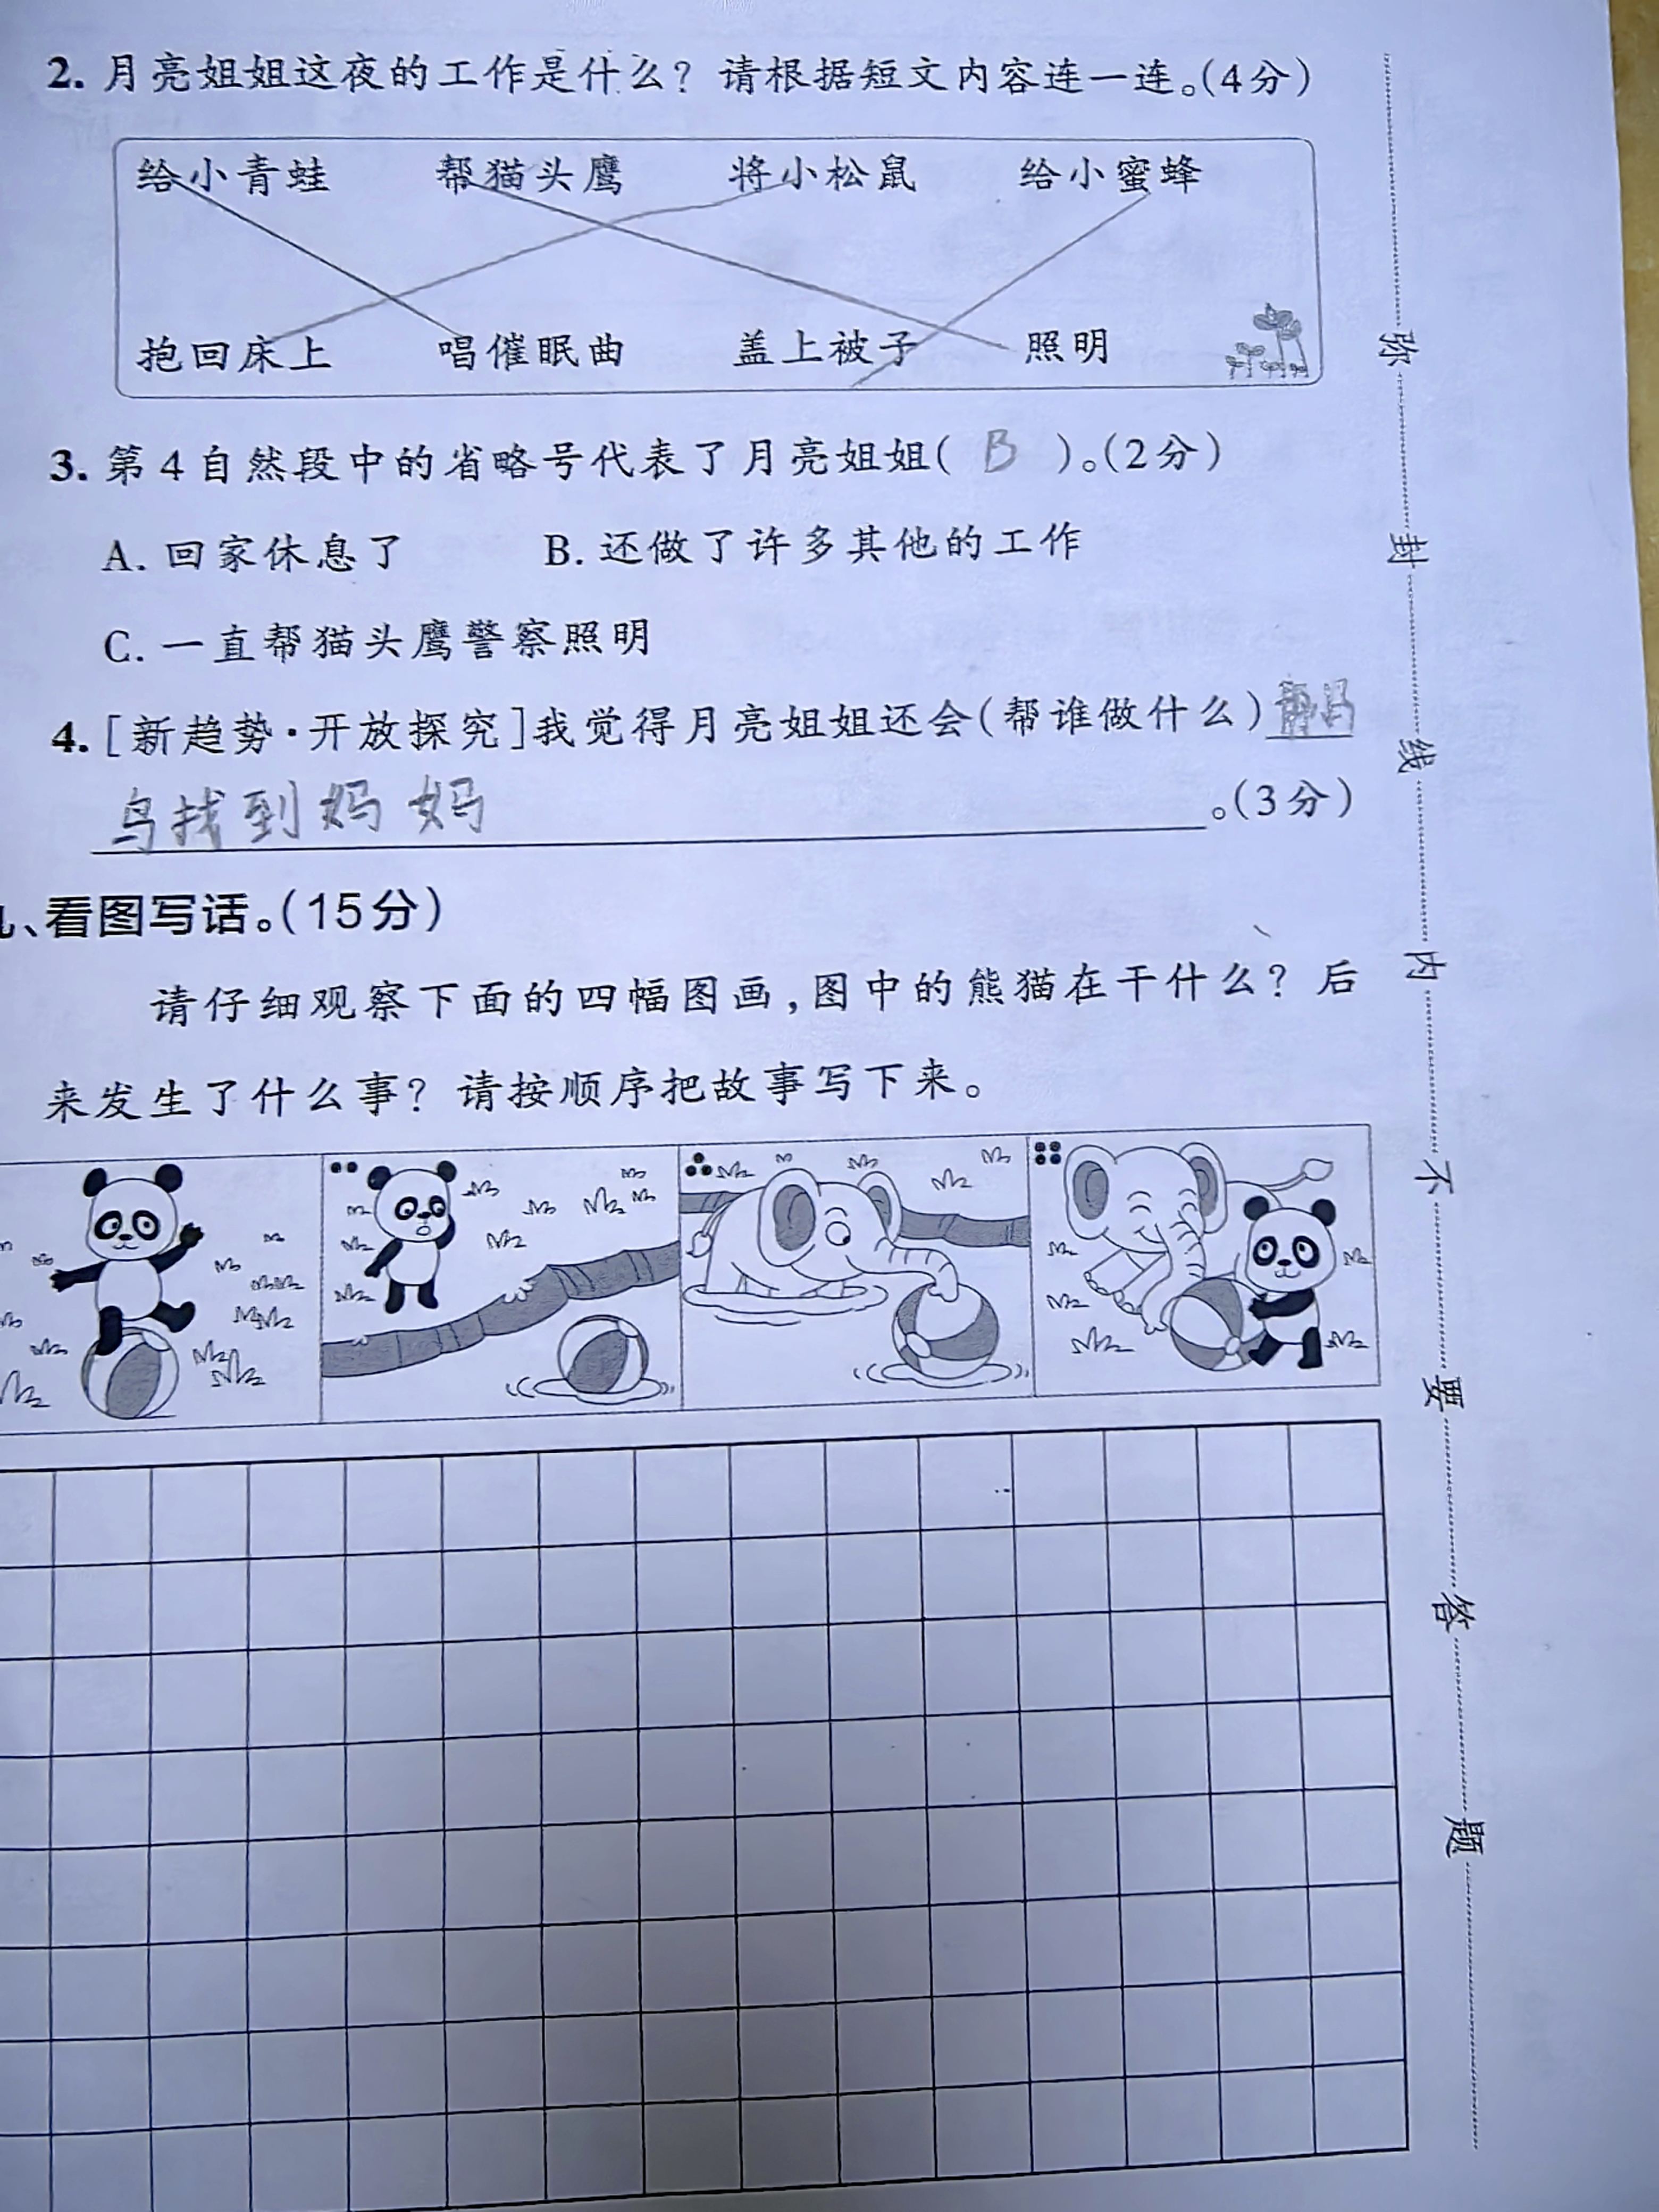 2. 月亮姐姐这夜的工作是什么？请根据短文内容连一连。(4分)
给小青蛙 帮猫头鹰 将小松鼠 给小蜜蜂
抱回床上 唱催眠曲 盖上被子 照明
3. 第4自然段中的省略号代表了月亮姐姐( B )。(2分)
A. 回家休息了 B. 还做了许多其他的工作
C. 一直帮猫头鹰警察照明
4. [新趋势·开放探究]我觉得月亮姐姐还会(帮谁做什么)
鸟找到妈妈。(3分)
、看图写话。(15分)
请仔细观察下面的四幅图画,图中的熊猫在干什么？后
来发生了什么事？请按顺序把故事写下来。
弥封线内不要答题